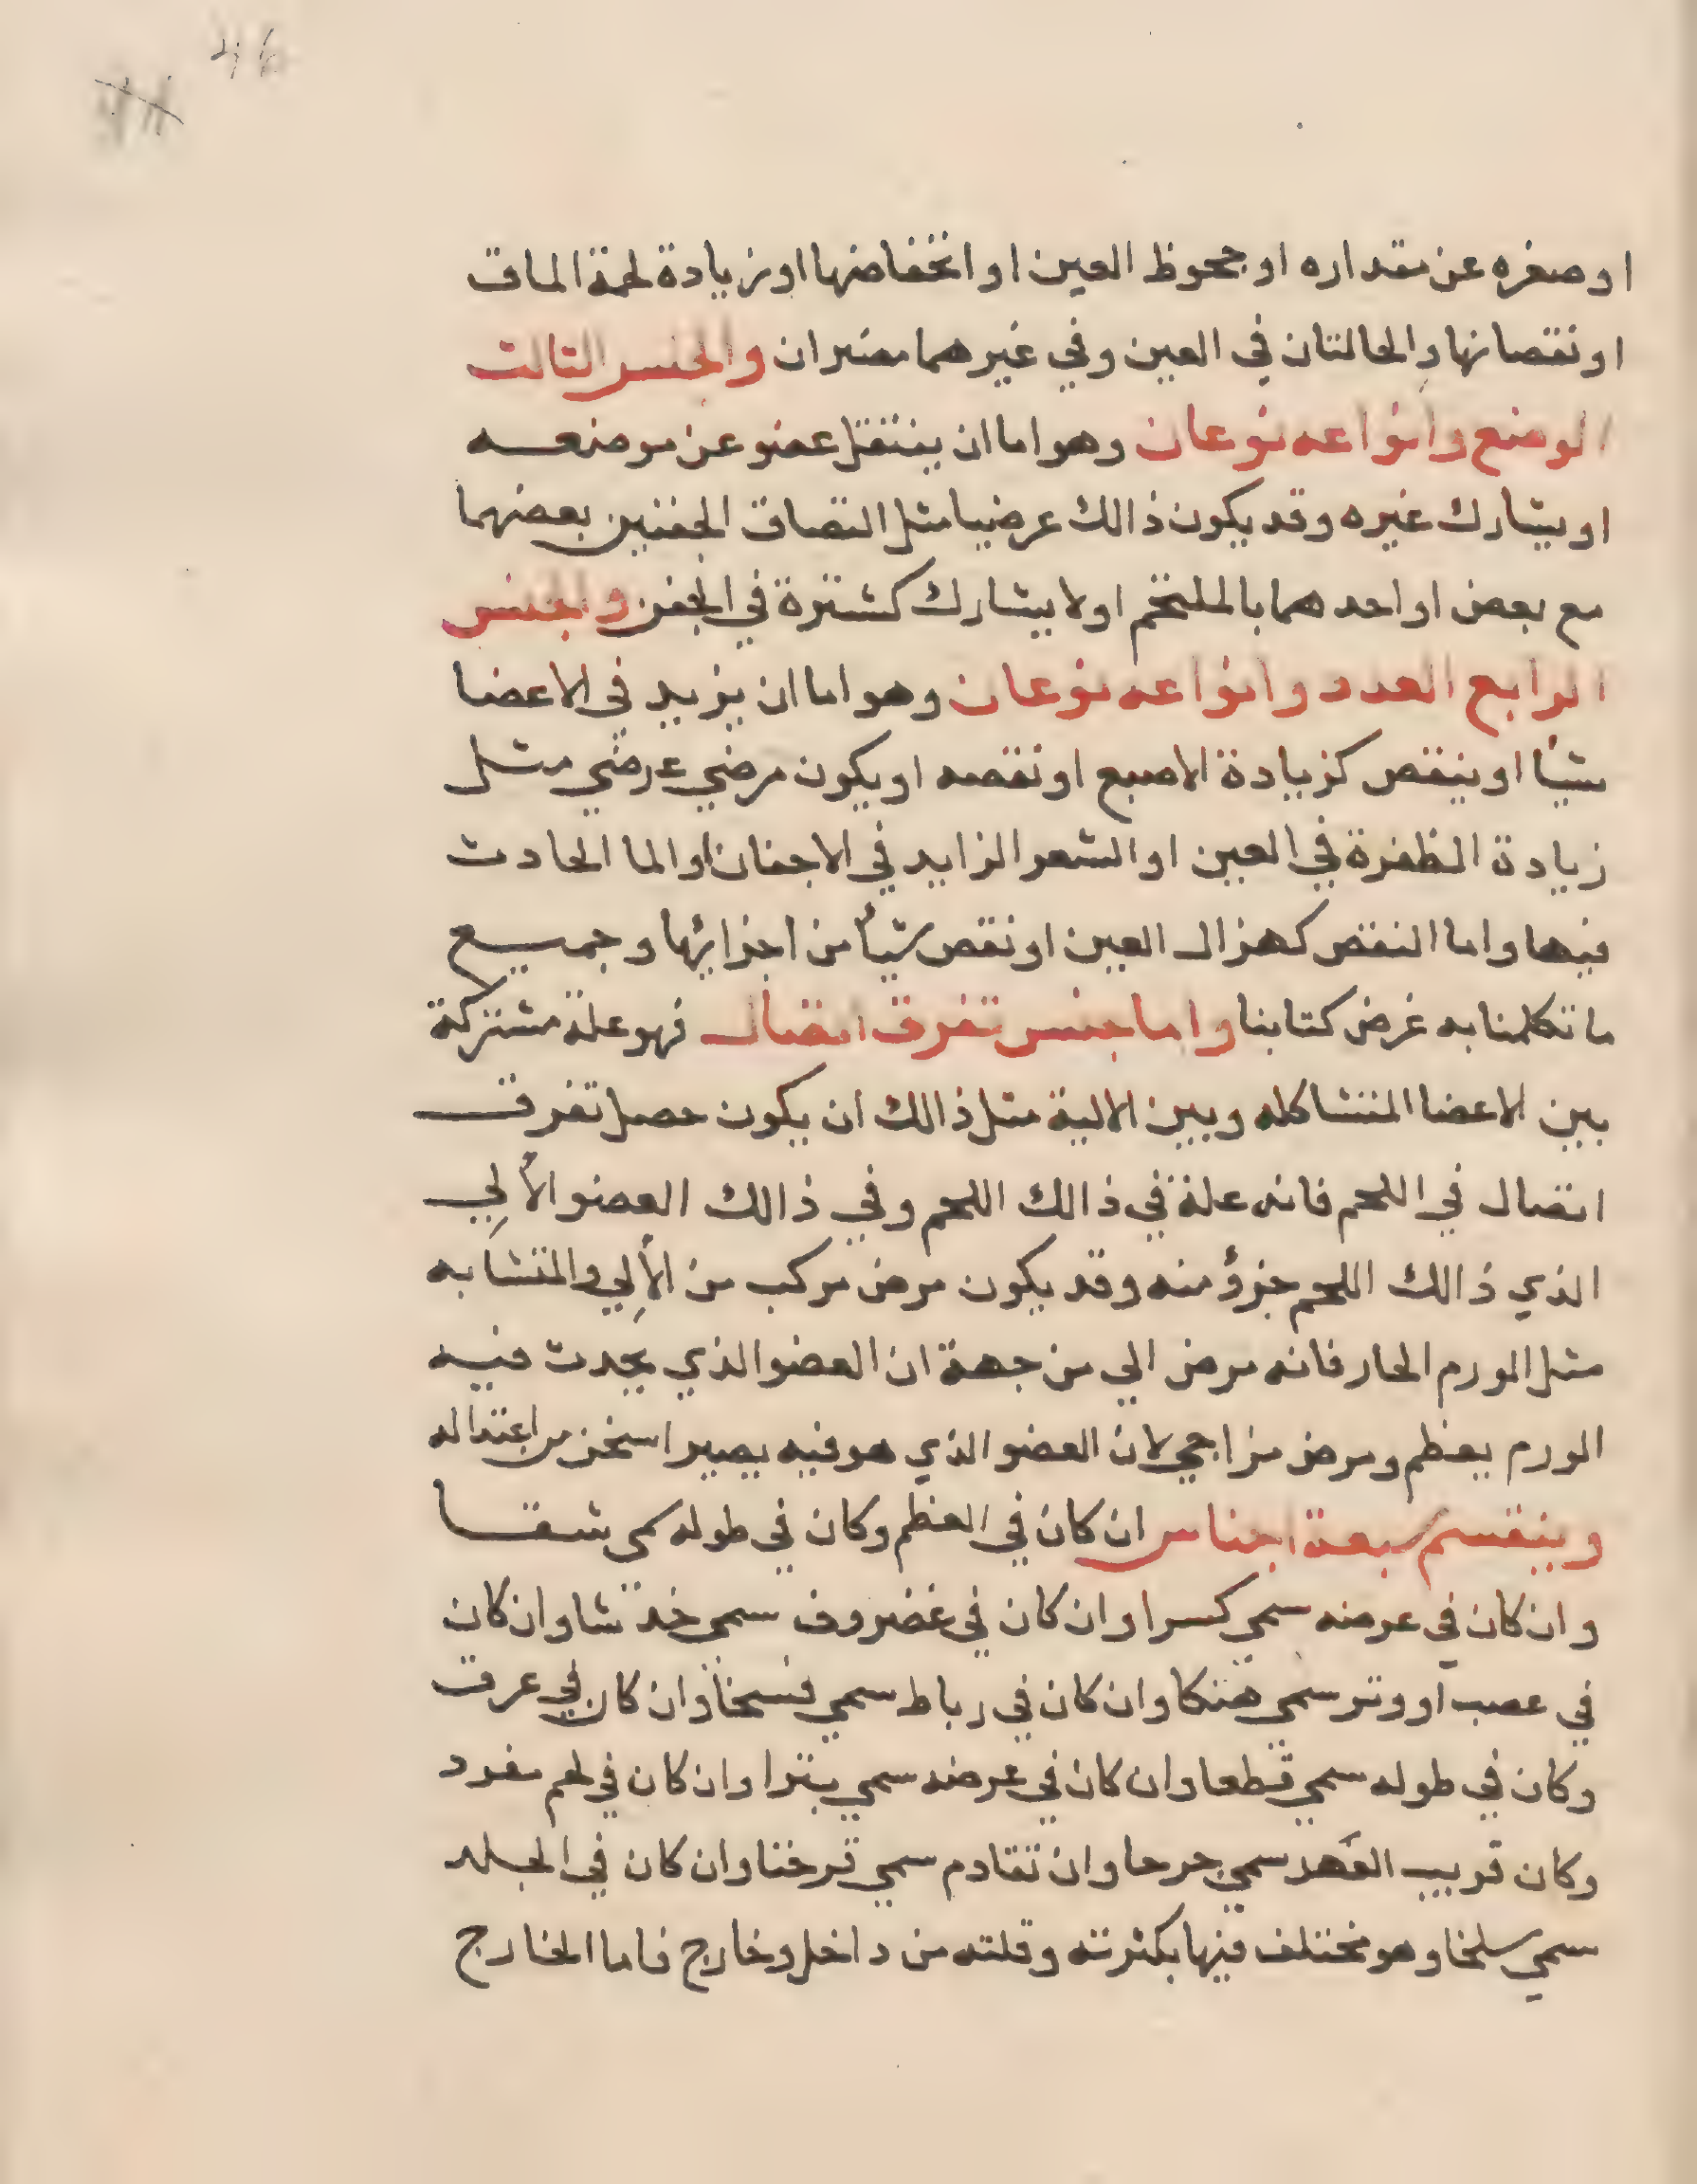 46
او صغره عن مقداره او جحوظ العين او انخفاضها او زيادة لحمة الماق
او نقصانها والحالتان في العين وفي غيرهما مضران والجنس الثالث
الوضع وانواعه نوعان وهو اما ان ينتقل عضو عن موضعه
او يشارك غيره وقد يكون ذالك عرضيا مثل التصاق الجفنين بعضهما
مع بعض او احدهما بالملتحم او لا يشارك كشترة في الجفن والجنس
الرابع العدد وانواعه نوعان وهو اما ان يزيد في الاعضا
شيأ او ينقص كزيادة الاصبع او نقصه او يكون مرضي عرضي مثل
زيادة الظفرة في العين او الشعر الزايد في الاجفان او الما الحادث
فيها واما النقص كهزال العين او نقص شيأ من اجزائها وجميع
ما تكلمنا به غرض كتابنا واما جنس تفرق اتصال فهو علة مشتركة
بين الاعضا المتشاكله وبين الالية مثل ذالك ان يكون حصل تفرق
اتصال في اللحم فانه علة في ذالك اللحم وفي ذالك العضو الألي
الذي ذالك اللحم جزؤ منه وقد يكون مرض مركب من الألي والمتشابه
مثل الورم الحار فانه مرض الي من جهة ان العضو الذي يحدث فيه
الورم يعظم ومرض مزاجي لان العضو الذي هو فيه يصير اسخن من اعتداله
وينقسم سبعة اجناس ان كان في العظم وكان في طوله سمى شقا
وان كان في عرضه سمي كسرا وان كان في غضروف سمي خدشا وان كان
في عصب او وتر سمي هتكا وان كان في رباط سمي فسخا وان كان في عرق
وكان في طوله سمي قطعا وان كان في عرضه سمي بترا وان كان في لحم مفرد
وكان قريب العهد سمي جرحا وان تقادم سمي قرحتا وان كان في الجلد
سمي سلخا وهو مختلف فيها بكثرته وقلته من داخل وخارج فاما الخارج